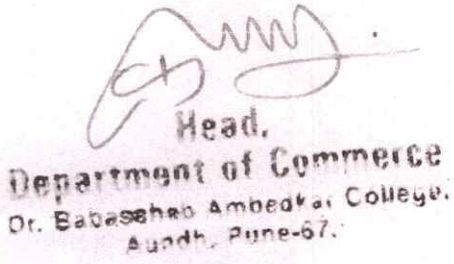 Head,
Department of Commerce
Dr. Babasaheb Ambedkar College,
Aundh, Pune-67.